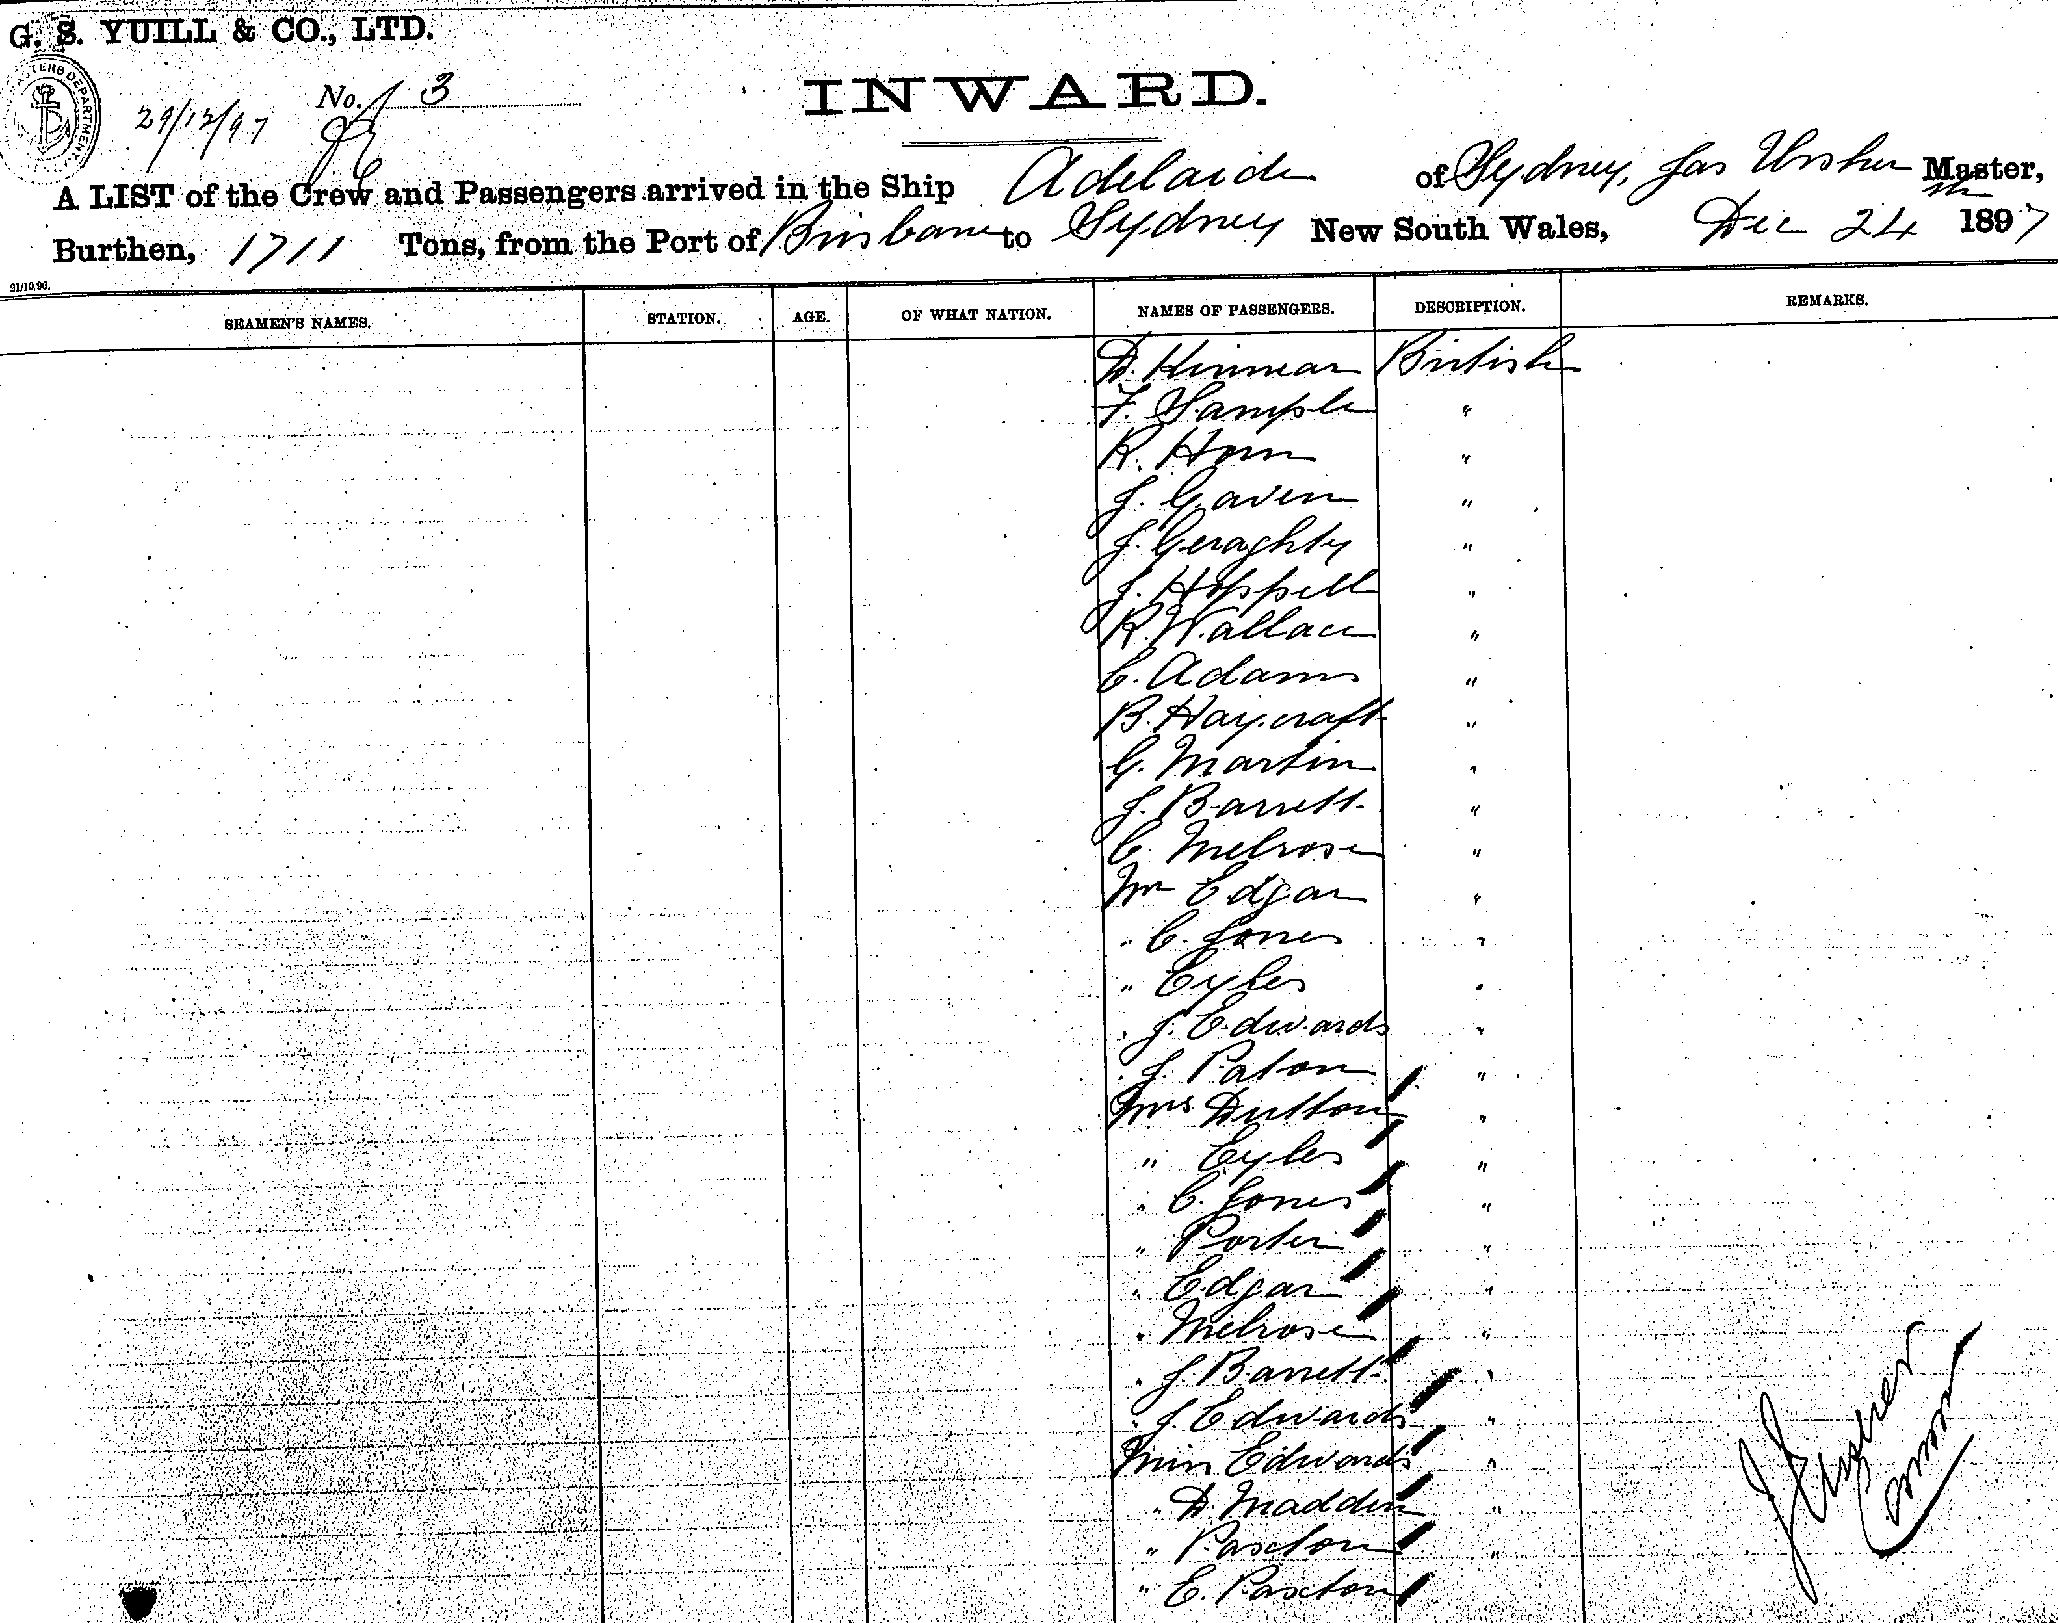 G. S. YUILL & CO., LTD.
29/12/97 No. 3
INWARD.
A LIST of the Crew and Passengers arrived in the Ship Adelaide of Sydney, Jas Ussher Master,
Burthen, 1711 Tons, from the Port of Brisbane to Sydney New South Wales, Dec 24th 1897
21/10.96.
SEAMEN'S NAMES. STATION. AGE. OF WHAT NATION. NAMES OF PASSENGERS. DESCRIPTION. REMARKS.
D. Kinnear British
F. Sample "
R. Horn "
J. Gaven "
J. Geraghty "
J. Hoppell "
R. Wallace "
C. Adams "
B. Haycraft "
G. Martin "
J. Barrett "
C. Melrose "
Mr Edgar "
" C. Jones "
" Eyles "
" J. Edwards "
" J. Paton "
Mrs Dutton "
" Eyles "
" C. Jones "
" Porter "
" Edgar "
" Melrose "
" J Barrett "
" J. Edwards "
Miss Edwards "
" D. Madden "
" Paxton "
" E. Paxton
J Ussher